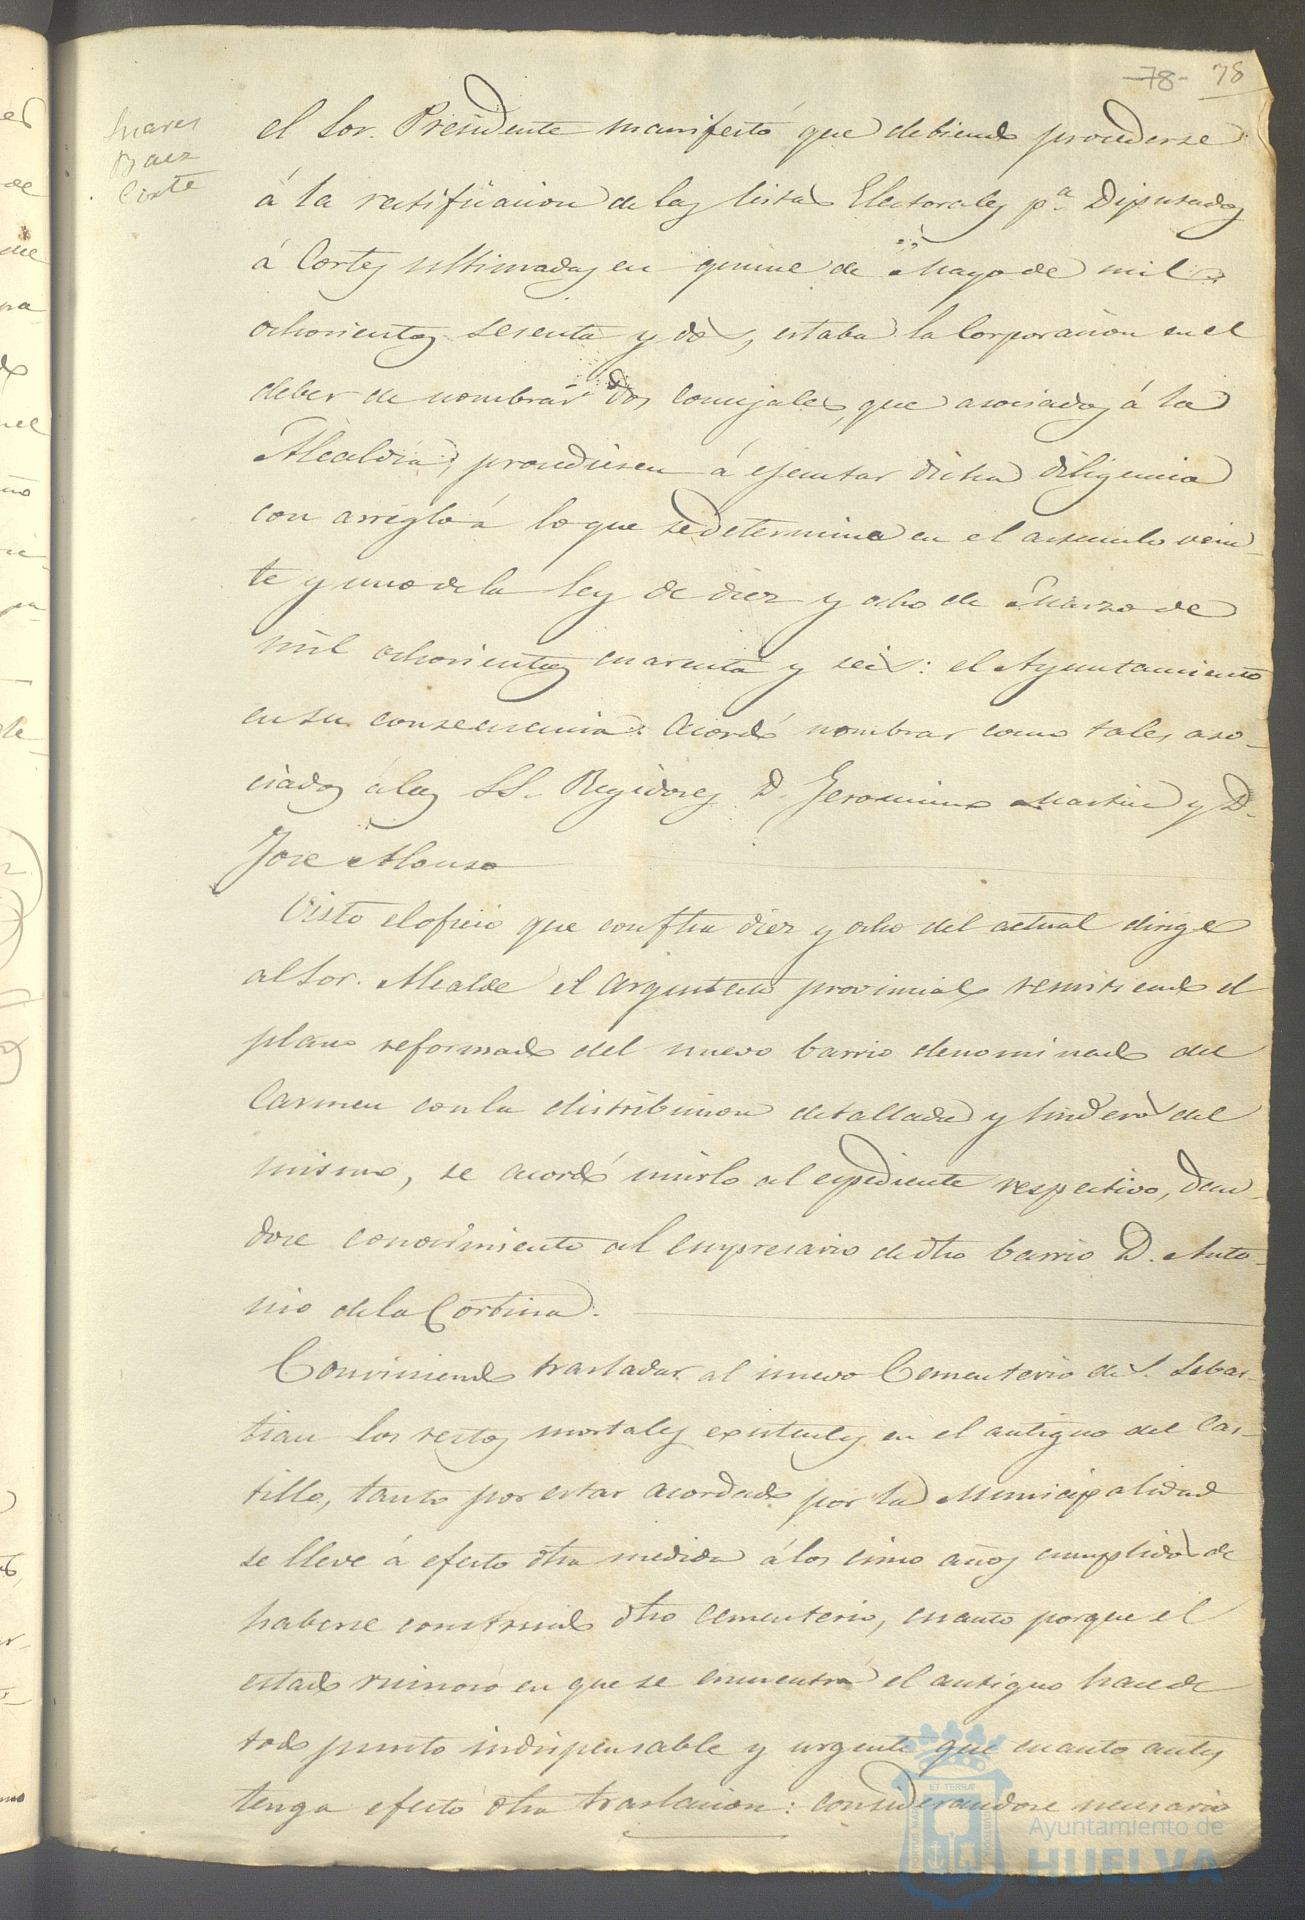 -78- 78
Suarez
Baez
Corte
el Sor. Presidente manifestó que debiendo procederse
á la rectificacion de las listas Electorales pª. Diputados
á Cortes ultimadas en quince de Mayo de mil
ochocientos sesenta y dos, estaba la Corporacion en el
deber de nombrar dos Concejales, que asociados á la
Alcaldia, procediesen á ejecutar dicha diligencia
con arreglo á lo que se determina en el articulo vein-
te y uno de la ley de diez y ocho de Marzo de
mil ochocientos cuarenta y seis: el Ayuntamiento
en su consecuencia acordó nombrar como tales aso-
ciados á los SS. Regidores D. Jeronimo Martin y D.
Jose Alonso
Visto el oficio que con fha diez y ocho del actual dirige
al Sor. Alcalde el Arquitecto provincial, remitiendo el
plano reformado del nuevo barrio denominado del
Carmen con la distribucion detallada y linderos del
mismo, se acordó unirlo al espediente respectivo, dan-
dose conocimiento al empresario de dho barrio D. Anto-
nio de la Cortina.
Conviniendo trasladar al nuevo Cementerio de S. Sebas-
tian los restos mortales existentes en el antiguo del Cas-
tillo, tanto por estar acordado por la Municipalidad
se lleve á efecto dha medida á los cinco años cumplidos de
haberse construido dho cementerio, cuanto porque el
estado ruinoso en que se encuentra el antiguo hace de
todo punto indispensable y urgente que cuanto antes
tenga efecto dha traslacion: considerandose necesario
ET TERRA
Ayuntamiento de
HUELVA